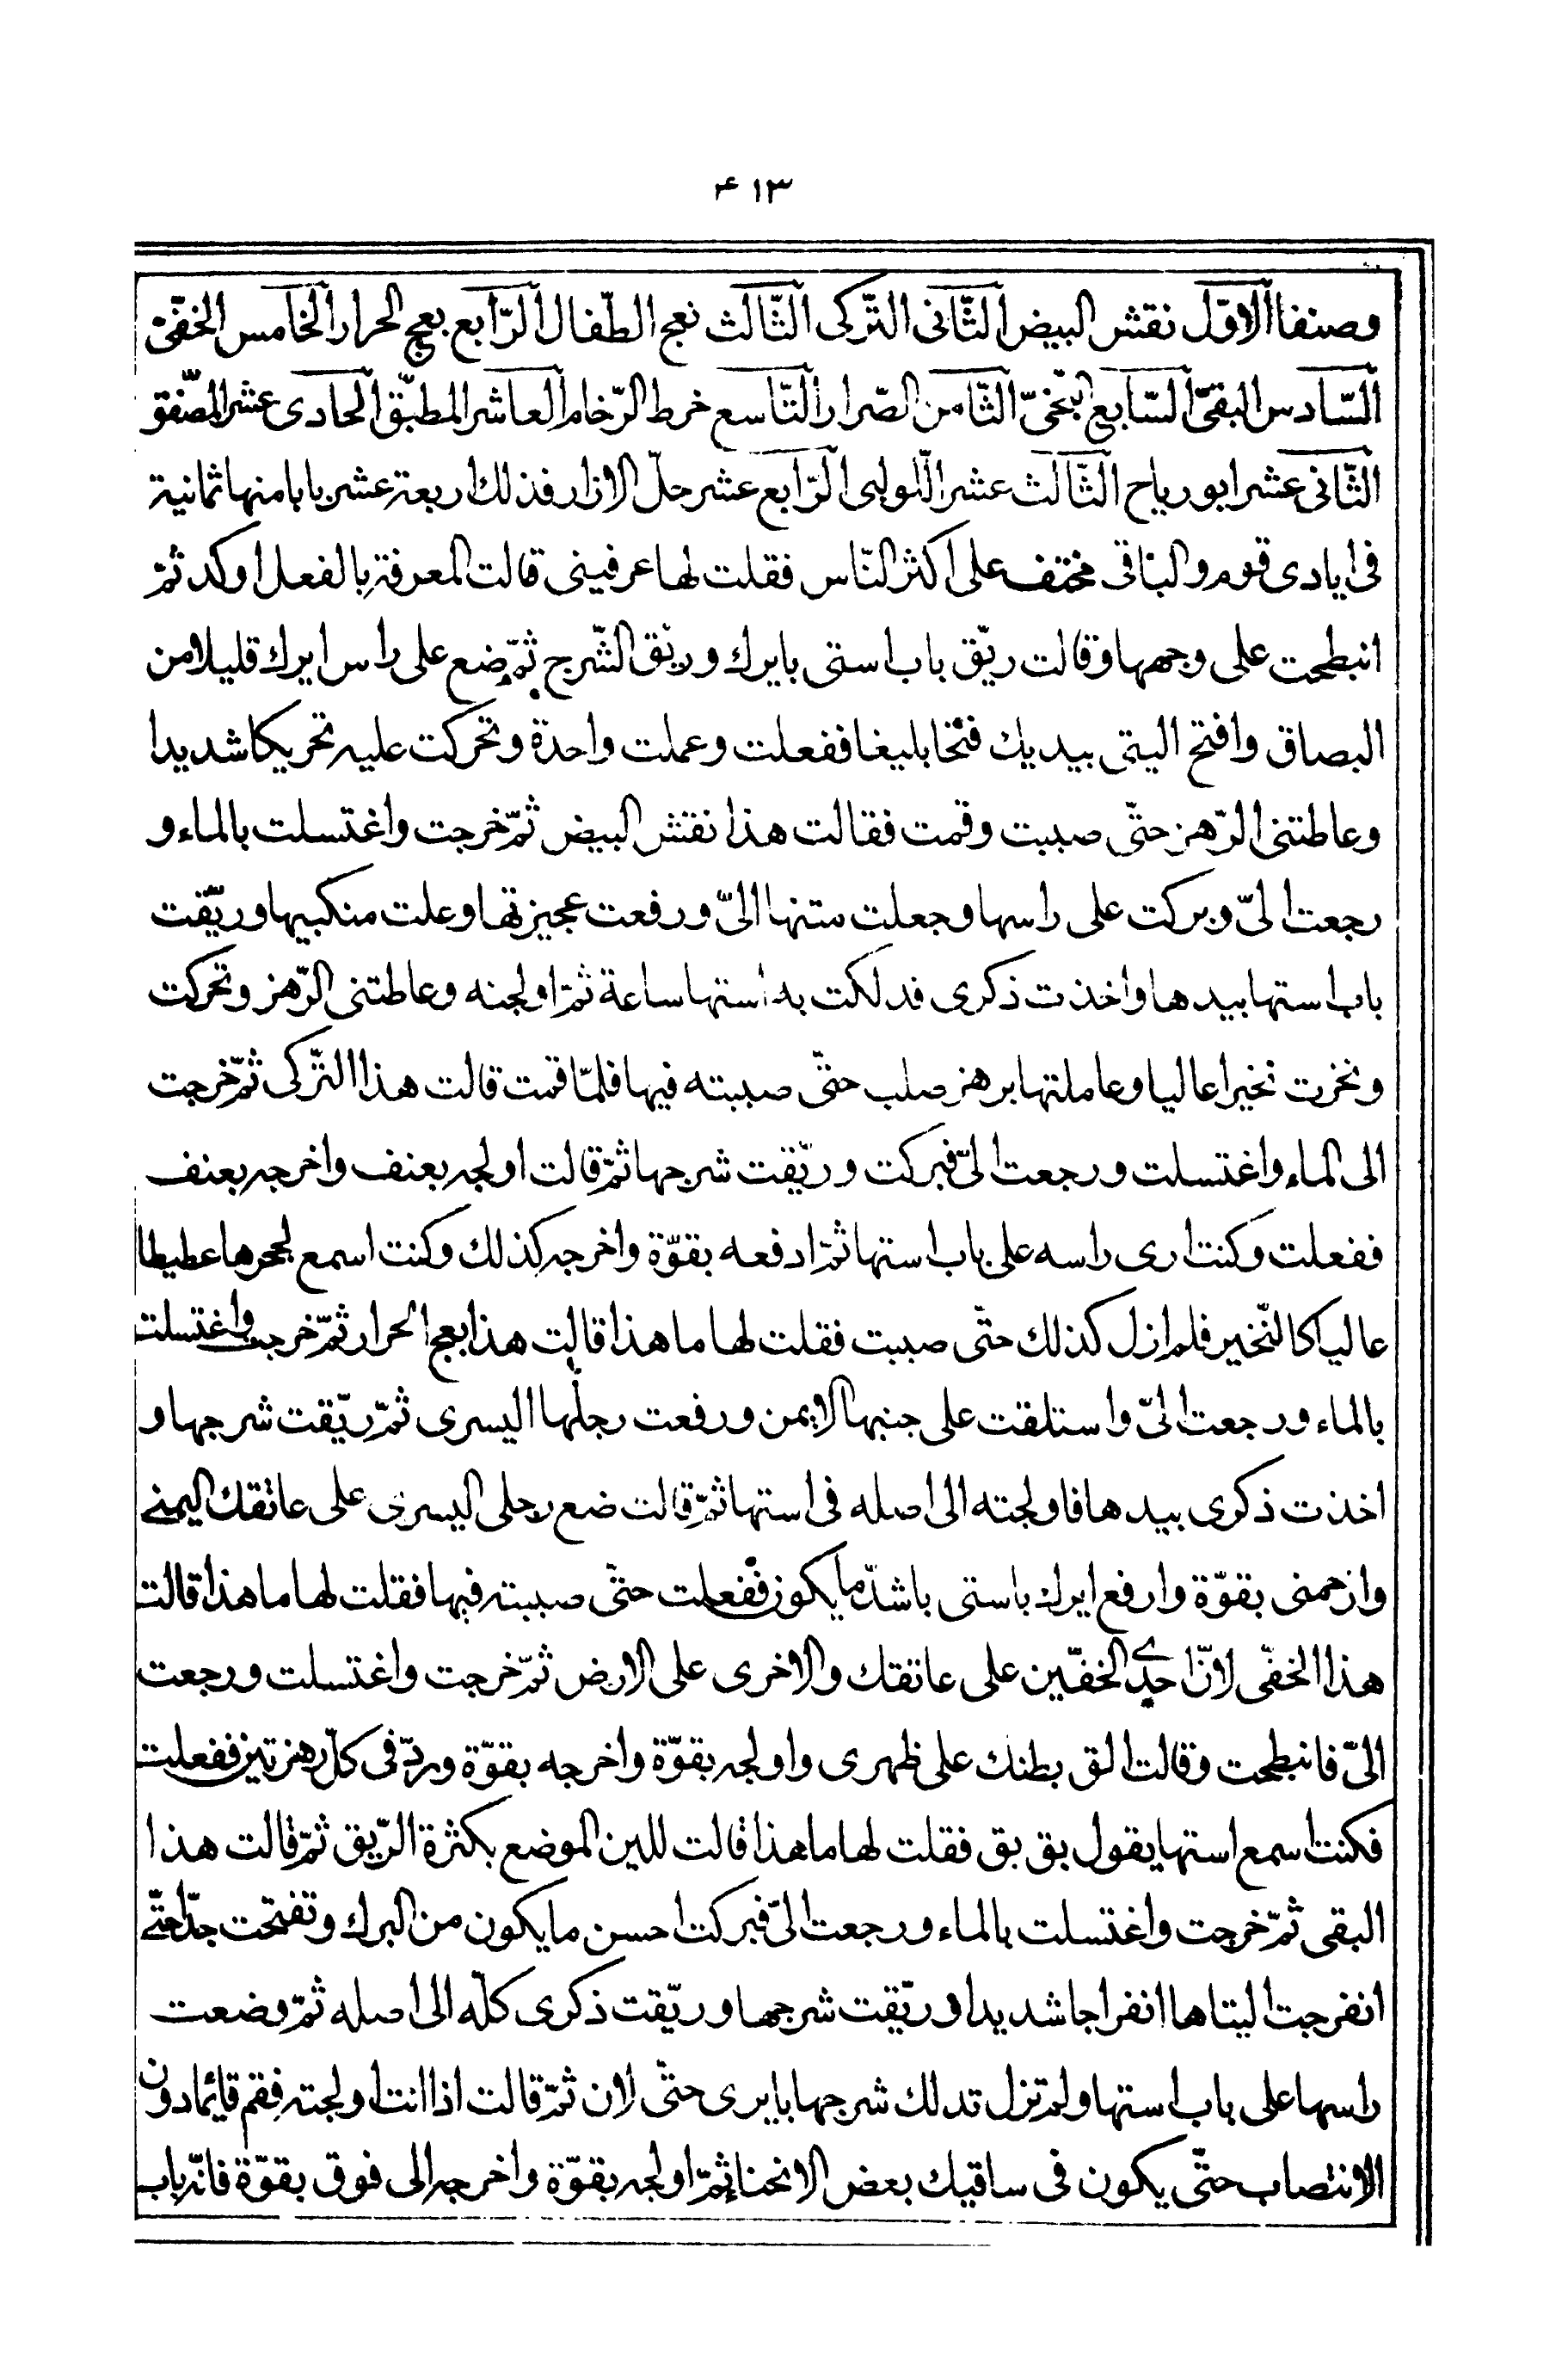 ۴۱۳
وصنفا الاوّل نقش البيض الثّانى التّركى الثّالث نعج الطّفال الرّابع بعج الحرار الخامس الخفّى
السّادس البقىّ السّابع البخىّ الثّامن الصّرار التّاسع خرط الرّخام العاشر المطبّق الحادى عشر المصّفق
الثّانى عشر ابو رياح الثّالث عشر اللّولبى الرّابع عشر حلّ الازار فذلك اربعة عشر بابا منها ثمانية
فى ايادى قوم والباقى مختف على اكثر النّاس فقلت لها عرفينى قالت المعرفة بالفعل اوكد ثمّ
انبطحت على وجهها وقالت ريّق باب استى بايرك وريّق الشّرج ثمّ ضع على راس ايرك قليلا من
البصاق وافتح اليتى بيديك فتحا بليغا ففعلت وعملت واحدة وتحركت عليه تحريكا شديدا
وعاطتنى الرّهز حتّى صببت وقمت فقالت هذا نقش البيض ثمّ خرجت واغتسلت بالماء و
رجعت الىّ وبركت على راسها وجعلت متنها الىّ ورفعت عجيزتها وعلت منكبيها وريّقت
باب استها بيدها واخذت ذكرى فدلكت به استها ساعة ثمّ اولجنه وعاطتنى الرّهز وتحركت
ونخرت نخيرا عاليا وعاملتها برهز صلب حتّى صببته فيها فلمّا قمت قالت هذا التّركى ثمّ خرجت
الى الماء واغتسلت ورجعت الىّ فبركت وريّقت شرجها ثمّ قالت اولجه بعنف واخرجه بعنف
ففعلت وكنت ارى راسه على باب استها ثمّ ادفعه بقوّة واخرجه كذلك وكنت اسمع لجحرها عطيطا
عاليا كالنّخير فلم ازل كذلك حتّى صببت فقلت لها ما هذا قالت هذا بعج الحرار ثمّ خرجت واغتسلت
بالماء ورجعت الىّ واستلقت على جنبها الايمن ورفعت رجلها اليسرى ثمّ ريّقت شرجها و
اخذت ذكرى بيدها فاولجته الى اصله فى استها ثمّ قالت ضع رجلى اليسرى على عاتقك اليمنى
وازحمنى بقوّة وارفع ايرك باستى باشدّ ما يكون ففعلت حتّى صببته فيها فقلت لها ما هذا قالت
هذا الخفّى لانّ احدى الخفّين على عاتقك والاخرى على الارض ثمّ خرجت واغتسلت ورجعت
الىّ فانبطحت وقالت الق بطنك على ظهرى واولجه بقوّة واخرجه بقوّة وردّ فى كلّ رهزتين ففعلت
فكنت اسمع استها يقول بق بق فقلت لها ما هذا قالت للين الموضع بكثرة الرّيق ثمّ قالت هذا
البقى ثمّ خرجت واغتسلت بالماء ورجعت الىّ فبركت احسن ما يكون من البرك وتفتحت جدّا حتّى
انفرجت اليتاها انفراجا شديدا وريّقت شرجها وريّقت ذكرى كلّه الى اصله ثمّ وضعت
راسها على باب استها ولم تزل تدلك شرجها بايرى حتّى لان ثمّ قالت اذا انت اولجته فقم قايما دون
الانتصاب حتّى يكون فى ساقيك بعض الانحناء ثمّ اولجه بقوّة واخرجه الى فوق بقوّة فانّه باب